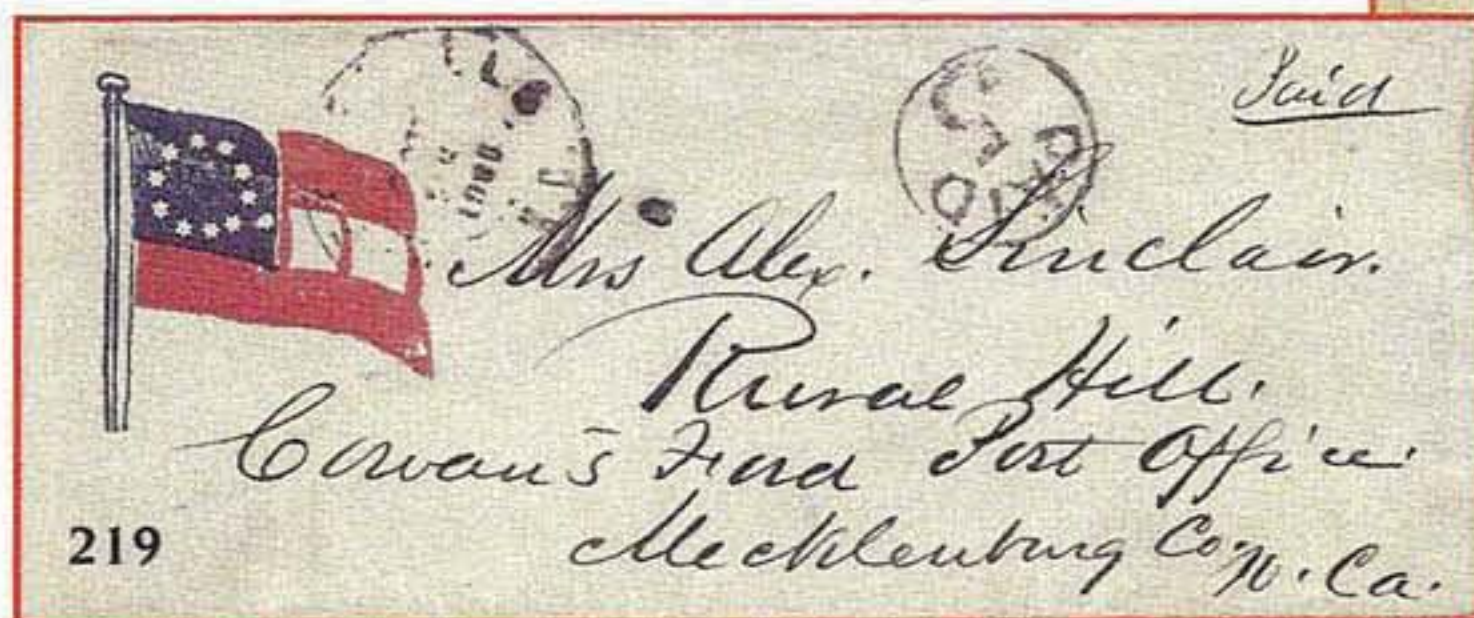 Paid
PAID
5
N.C.
Mrs Alex. Sinclair.
Rural Hill.
Cowan's Ford Post Office
Mecklenburg Co. N. Ca.
219